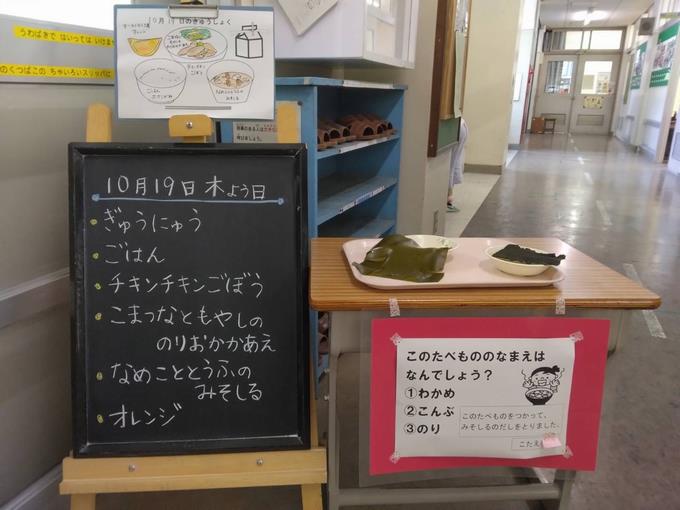 うわばきで はいっては いけま
のくつばこの ちゃいろいスリッパに
10月19日のきゅうしょく
オレンジ
ごはん
10月19日 木よう日
ぎゅうにゅう
ごはん
チキンチキンごぼう
こまつなともやしの
のりおかかあえ
なめこととうふの
みそしる
オレンジ
このたべもののなまえは
なんでしょう？
①わかめ
②こんぶ
③のり
このたべものをつかって、
みそしるのだしをとりました。
こたえ